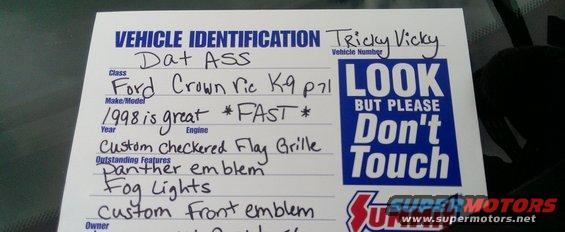 VEHICLE IDENTIFICATION
Tricky Vicky
Vehicle Number
Dat ASS
Class
Ford Crown vic K-9 p71
Make/Model
1998 is great *FAST*
Year Engine
Custom checkered Flag Grille
Outstanding Features
panther emblem
Fog Lights
custom Front emblem
Owner
LOOK
BUT PLEASE
Don't
Touch
SUPERMOTORS
www.supermotors.net